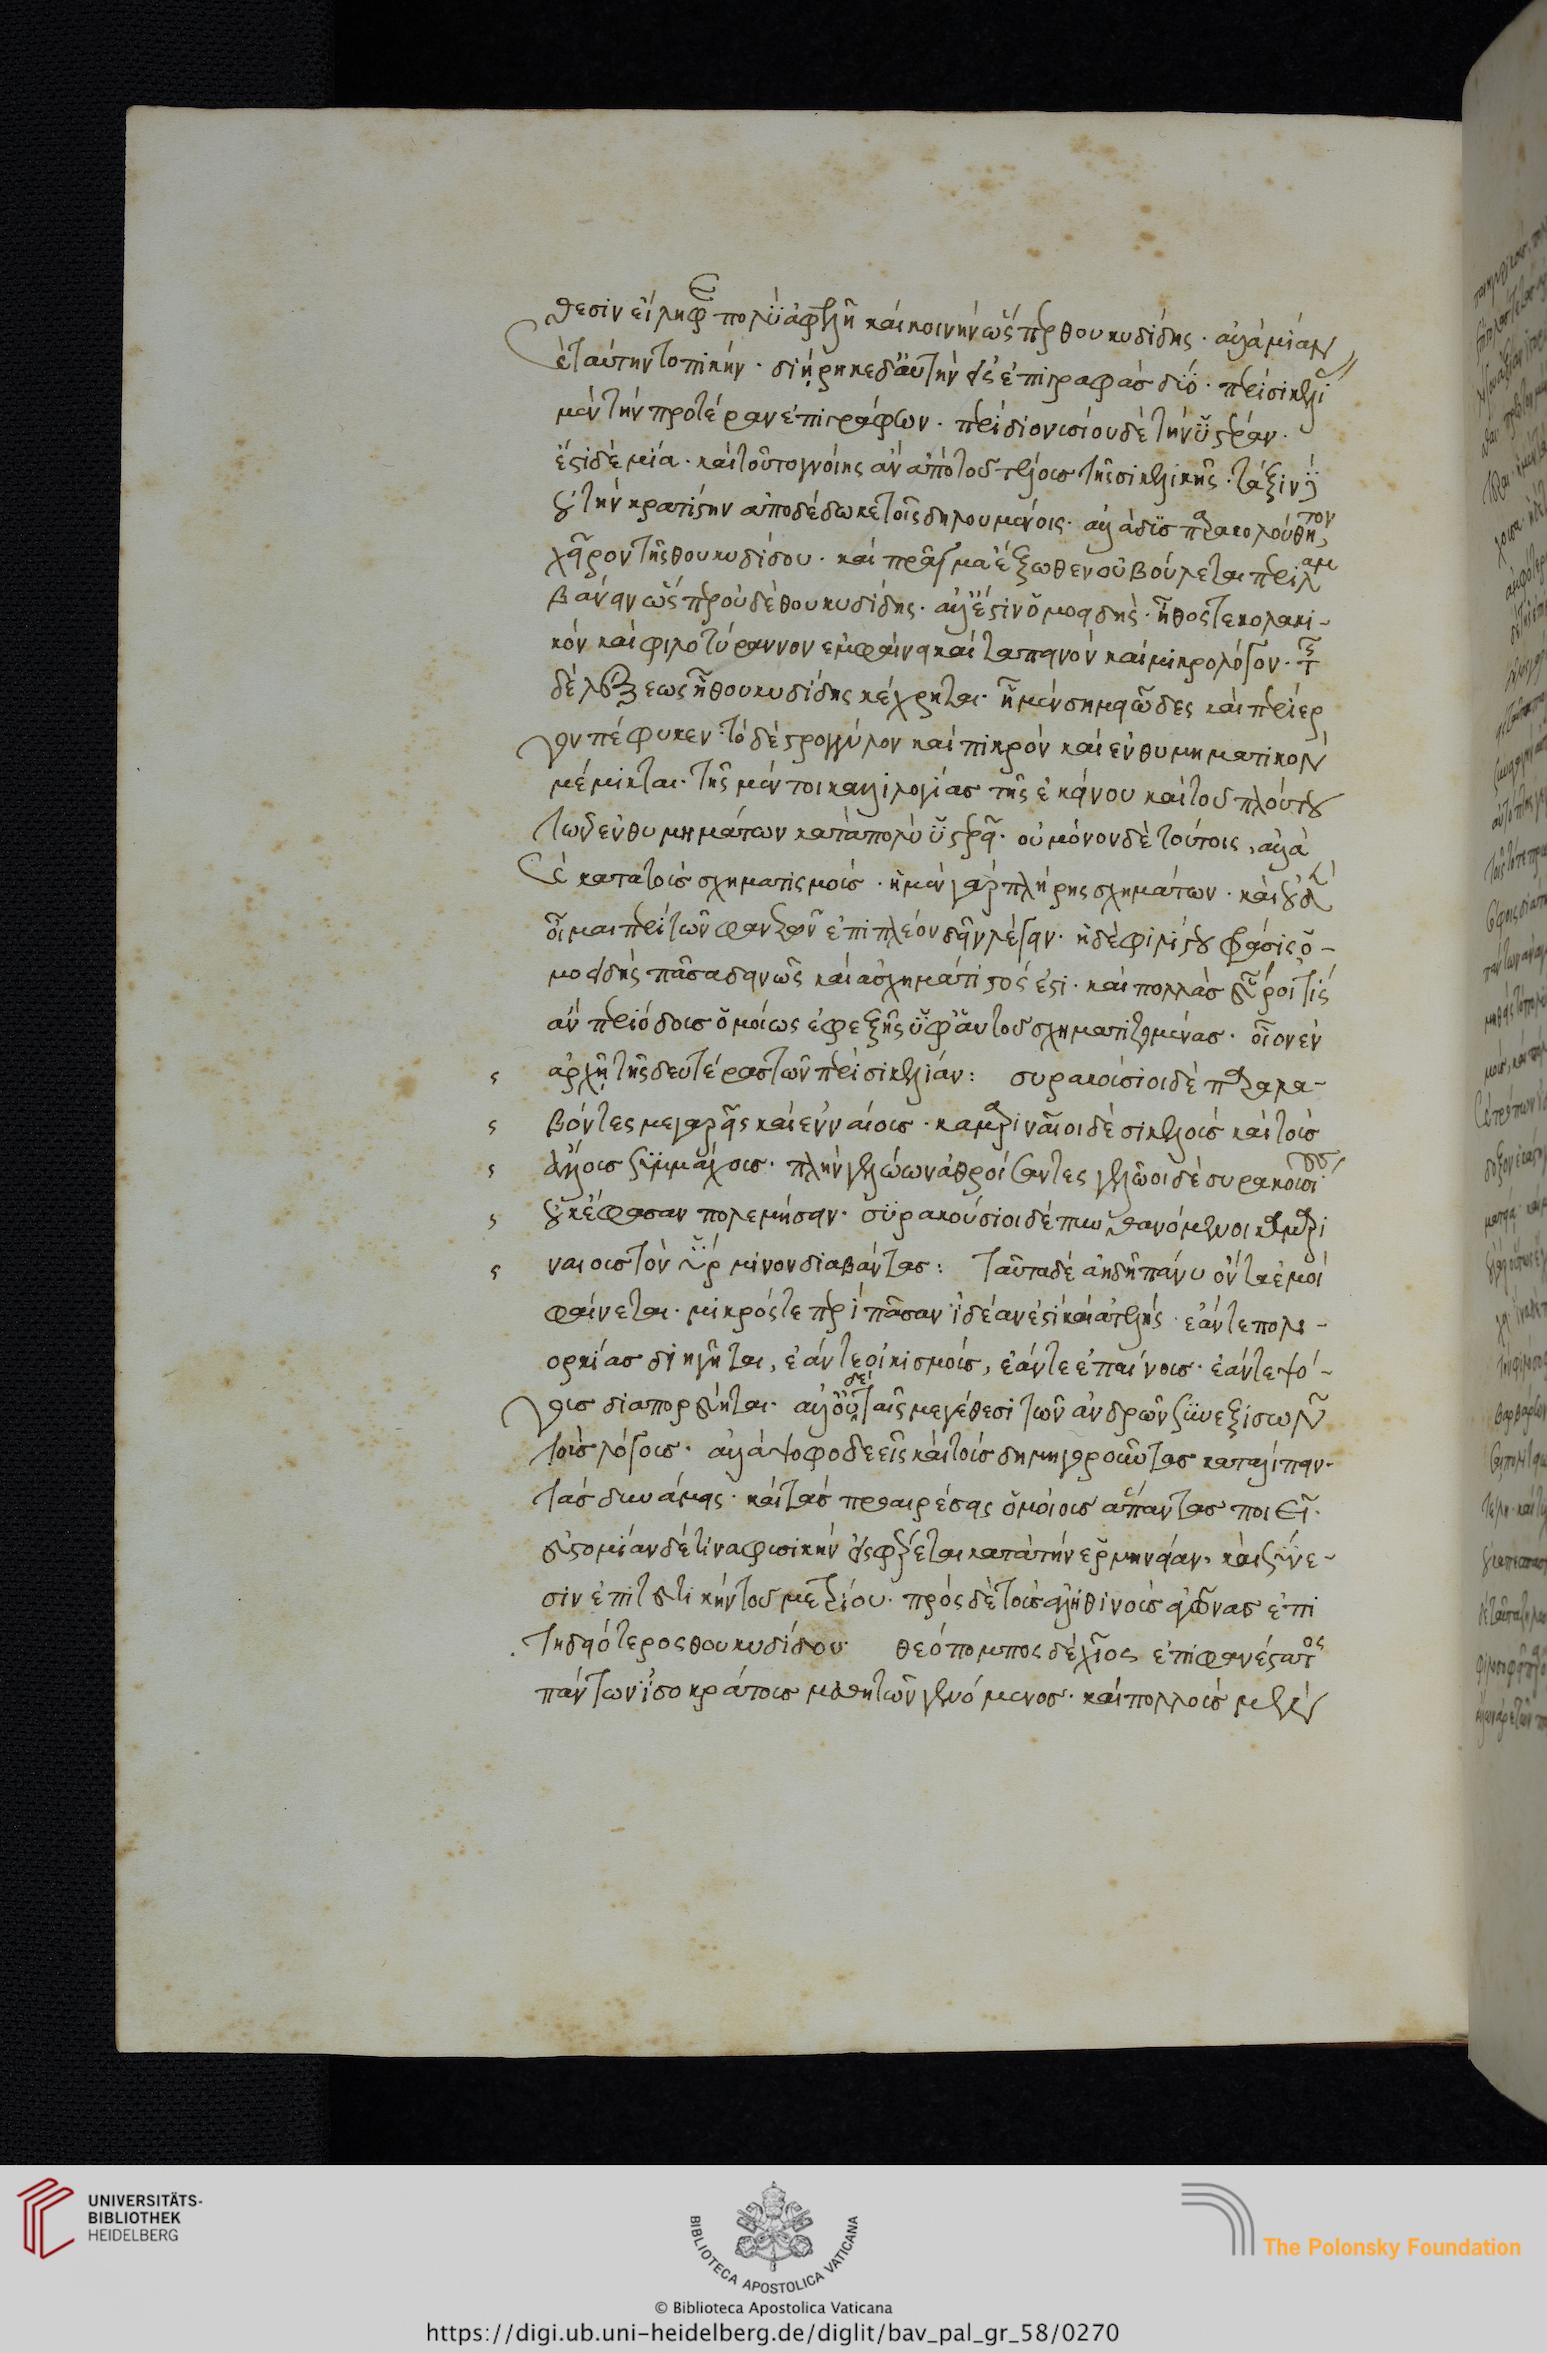 θεσιν εἴληφεν πολυωφελῆ καὶ κοινὴν ὥσπερ θουκυδίδης· ἀλλὰ μίαν
καὶ ταύτην τοπικήν· διῄρηκε δ' αὐτὴν εἰς ἐπιγραφὰς δύο· περὶ σικελί
μὲν τὴν προτέραν ἐπιγράφων· περὶ διονυσίου δὲ τὴν ὑστέραν·
ἔστι δὲ μία· καὶ τοῦτο γνοίης ἂν ἀπὸ τοῦ τέλους τῆς σικελικῆς· τάξιν
οὐ τὴν κρατίστην ἀποδέδωκε τοῖς δηλουμένοις· ἀλλὰ δυσπαρακολούθητον
χεῖρον τῆς θουκυδίδου· καὶ πρᾶγμα ἔξωθεν οὐ βούλεται περιλαμ
βάνειν ὥσπερ οὐδὲ θουκυδίδης· ἀλλ' ἔστιν ὁμοειδής· ἦθός τε κολακι-
κὸν καὶ φιλοτύραννον ἐμφαίνει καὶ ταπεινὸν καὶ μικρολόγον· τῆς
δὲ λέξεως ᾗ θουκυδίδης κέχρηται· ἣ μὲν σημειῶδες καὶ περίερ
γον πέφυκεν· τὸ δὲ στρογγύλον καὶ πικρὸν καὶ ἐνθυμηματικὸν
μέμικται· τῆς μέντοι καλλιλογίας τῆς ἐκείνου καὶ τοῦ πλούτου
τῶν ἐνθυμημάτων κατὰ πολὺ ὑστερεῖ· οὐ μόνον δὲ τούτοις, ἀλλὰ
καὶ κατὰ τοὺς σχηματισμούς· ἡ μὲν γὰρ πλήρης σχημάτων· καὶ οὐδὲν
οἶμαι περὶ τῶν φανερῶν ἐπὶ πλέον δεῖν λέγειν· ἡ δὲ φιλίστου φράσις ὁ-
μοειδὴς πᾶσα δεινῶς καὶ ἀσχημάτιστός ἐστι· καὶ πολλὰς εὕροι τίς
ἂν περιόδους ὁμοίως ἐφεξῆς ὑφ' αὑτοῦ σχηματιζομένας· οἷον ἐν
ἀρχῇ τῆς δευτέρας τῶν περὶ σικελίαν: συρακούσιοι δὲ παραλα-
βόντες μεγαρεῖς καὶ ἐνναίους· καμαριναῖοι δὲ σικελοὺς καὶ τοὺς
ἄλλους συμμάχους· πλὴν γελώων ἀθροίσαντες γελῶοι δὲ συρακουσίοις
οὐκ ἔφασαν πολεμήσειν· συρακούσιοι δὲ πυνθανόμενοι καμαρι
ναίους τὸν ὕρμινον διαβάντας: ταῦτα δὲ ἀηδῆ πάνυ ὄντα ἐμοὶ
φαίνεται· μικρός τε περὶ πᾶσαν ἰδέαν ἐστὶ καὶ ἀτελής· ἐάν τε πολι-
ορκίας διηγῆται, ἐάν τε οἰκισμούς, ἐάν τε ἐπαίνους· ἐάν τε ψό-
γους διαπορεύηται· ἀλλ' οὐδὲ ταῖς μεγέθεσι τῶν ἀνδρῶν συνεξισῶν
τοὺς λόγους· ἀλλὰ ψοφοδεεῖς καὶ τοὺς δημηγοροῦντας καταλίπειν·
τὰς δυνάμεις· καὶ τὰς προαιρέσεις ὁμοίους ἅπαντας ποιεῖ·
εὐστομίαν δέ τινα φυσικὴν εἰσφέρεται κατὰ τὴν ἑρμηνείαν· καὶ σύνε-
σιν ἐπιτευκτικὴν τοῦ μετρίου· πρὸς δὲ τοὺς ἀληθινοὺς ἀγῶνας ἐπι
τηδειότερος θουκυδίδου· θεόπομπος δὲ χῖος ἐπιφανέστατος
πάντων ἰσοκράτους μαθητῶν γενόμενος· καὶ πολλοὺς μὲν
UNIVERSITÄTS-
BIBLIOTHEK
HEIDELBERG
BIBLIOTECA APOSTOLICA VATICANA
The Polonsky Foundation
© Biblioteca Apostolica Vaticana
https://digi.ub.uni-heidelberg.de/diglit/bav_pal_gr_58/0270